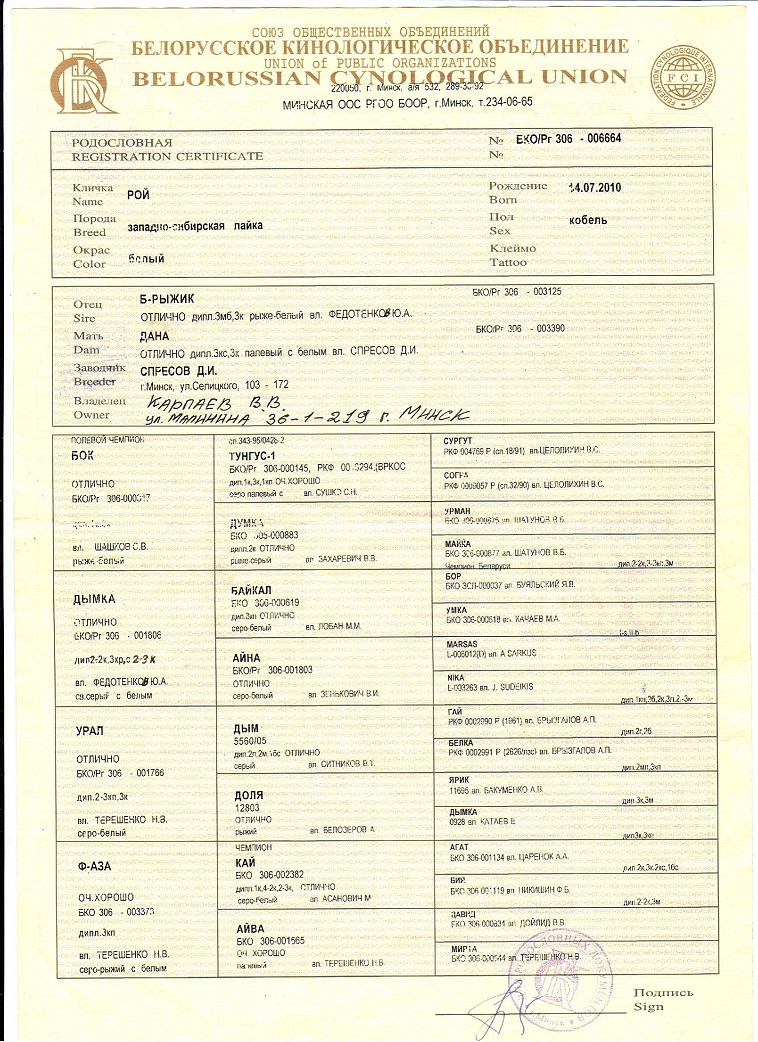 СОЮЗ ОБЩЕСТВЕННЫХ ОБЪЕДИНЕНИЙ
БЕЛОРУССКОЕ КИНОЛОГИЧЕСКОЕ ОБЪЕДИНЕНИЕ
UNION of PUBLIC ORGANIZATIONS
BELORUSSIAN CYNOLOGICAL UNION
220050, г. Минск, а/я 532, 289-30-92
МИНСКАЯ ООС РГОО БООР, г.Минск, т.234-06-65
FCI
РОДОСЛОВНАЯ
REGISTRATION CERTIFICATE
№ БКО/Рг 306 - 006664
№
Кличка
Name РОЙ
Рождение 14.07.2010
Born
Порода
Breed западно-сибирская лайка
Пол кобель
Sex
Окрас
Color белый
Клеймо
Tattoo
Отец Б-РЫЖИК БКО/Рг 306 - 003125
Sire ОТЛИЧНО дипл.3мб,3к рыже-белый вл. ФЕДОТЕНКОВ Ю.А.
Мать ДАНА БКО/Рг 306 - 003390
Dam ОТЛИЧНО дипл.3кс,3к палевый с белым вл. СПРЕСОВ Д.И.
Заводчик СПРЕСОВ Д.И.
Breeder г.Минск, ул.Селицкого, 103 - 172
Владелец КАРПАЕВ В.В.
Owner ул. МАЛИНИНА 36-1-219 г. МИНСК
ПОЛЕВОЙ ЧЕМПИОН
БОК
ОТЛИЧНО
вл. ШАШКОВ С.В.
рыже-белый
ДЫМКА
ОТЛИЧНО
БКО/Рг 306 - 001806
дип2-2к,3кр,с 2-3К
вл. ФЕДОТЕНКОВ Ю.А.
св.серый с белым
УРАЛ
ОТЛИЧНО
БКО/Рг 306 - 001766
дип.2-3кп,3к
вл. ТЕРЕШЕНКО Н.В.
серо-белый
Ф-АЗА
ОЧ.ХОРОШО
БКО 306 - 003373
дипл.3кп
вл. ТЕРЕШЕНКО Н.В.
серо-рыжий с белым
ТУНГУС-1
БКО/Рг 306-000145, РКФ
дип.1к,3к,1кп ОЧ.ХОРОШО
серо палевый с вл. СУШКО С.Н.
ДУМКА
БКО 306-000883
дипл.2к ОТЛИЧНО
рыже-серый вл ЗАХАРЕВИЧ В.В.
БАЙКАЛ
БКО 306-000619
дип.3кп ОТЛИЧНО
серо-белый вл. ЛОБАН М.М.
АЙНА
БКО/Рг 306-001803
ОТЛИЧНО
серо-белый вл ЗЕНЬКОВИЧ В.И.
ДЫМ
5560/05
ОТЛИЧНО
серый вл. СИТНИКОВ В.Т.
ДОЛЯ
12803
ОТЛИЧНО
рыжий вл. БЕЛОЗЕРОВ А
ЧЕМПИОН
КАЙ
БКО 306-002382
дипл.1к,4-2к,2-3к, ОТЛИЧНО
серо-белый вл АСАНОВИЧ М
АЙВА
БКО 306-001565
ОЧ. ХОРОШО
палевый вл. ТЕРЕШЕНКО Н.В.
СУРГУТ
РКФ 004769 Р (сп.18/91) вл.ЦЕЛОЛИХИН В.С.
СОГРА
РКФ 0009057 Р (сп.32/90) вл. ЦЕЛОЛИХИН В.С.
УРМАН
вл. ШАТУНОВ В.Б.
МАЙКА
БКО 306-000877 вл. ШАТУНОВ В.Б.
Чемпион Беларуси
БОР
вл. БУЯЛЬСКИЙ Я.В.
УМКА
БКО 306-000618 вл. КАЧАЕВ М.А.
MARSAS
L-006012(D) вл. A.SARKUS
NIKA
L-003263 вл. J. SUDEIKIS
ГАЙ
РКФ 0002990 Р (1961) вл. БРЫЗГАЛОВ А.П.
дип.2г,2б
БЕЛКА
РКФ 0002991 Р вл. БРЫЗГАЛОВ А.П.
дип.2мп,3кп
ЯРИК
11695 вл. БАКУМЕНКО А.В.
дип.3к,3м
ДЫМКА
0928 вл КАТАЕВ Е
дип3к,3кп
АГАТ
БКО 306-001134 вл. ЦАРЕНОК А.А.
дип.2к,3к,2кс,1бс
вл. НИКИШИН Ф.Б.
дип.2-2к,3м
ДАВИД
вл. ДОЙЛИД В.В.
МИРТА
вл. ТЕРЕШЕНКО Н.В.
Подпись
Sign